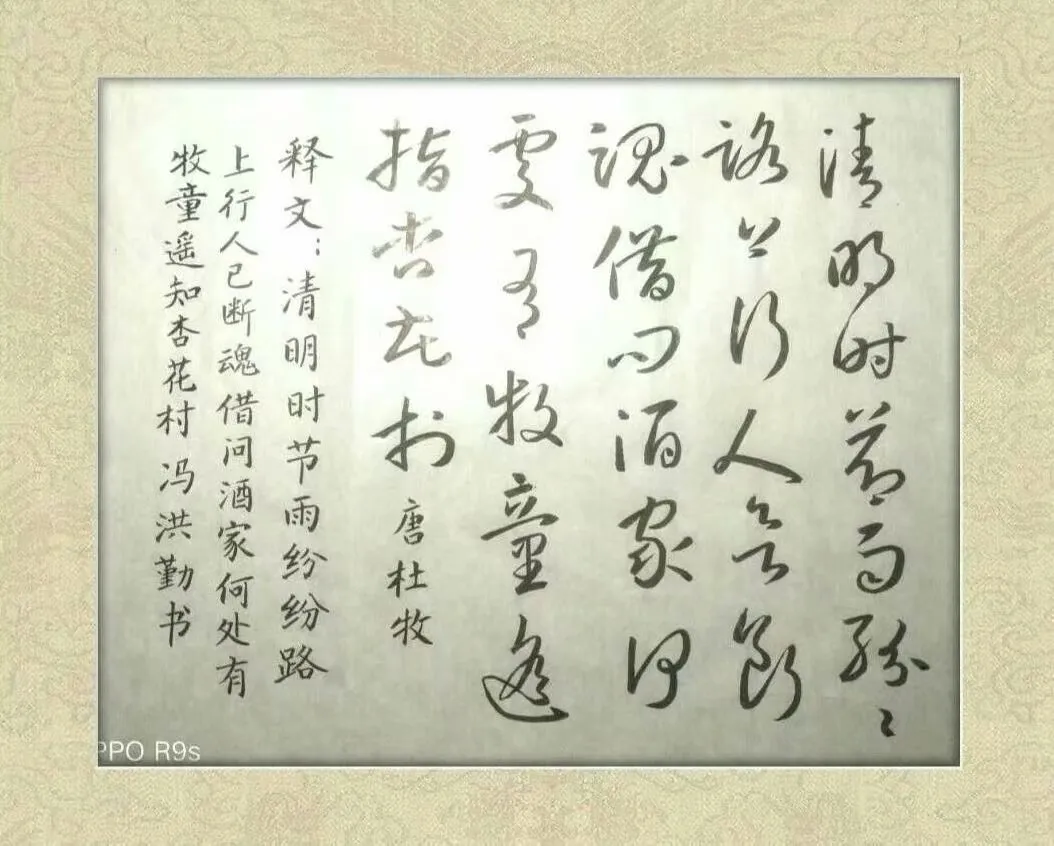 清明时节雨纷〻
路上行人欲断
魂借问酒家何
处有牧童遥
指杏花村 唐杜牧
释文：清明时节雨纷纷路
上行人已断魂借问酒家何处有
牧童遥知杏花村 冯洪勤书
PPO R9s